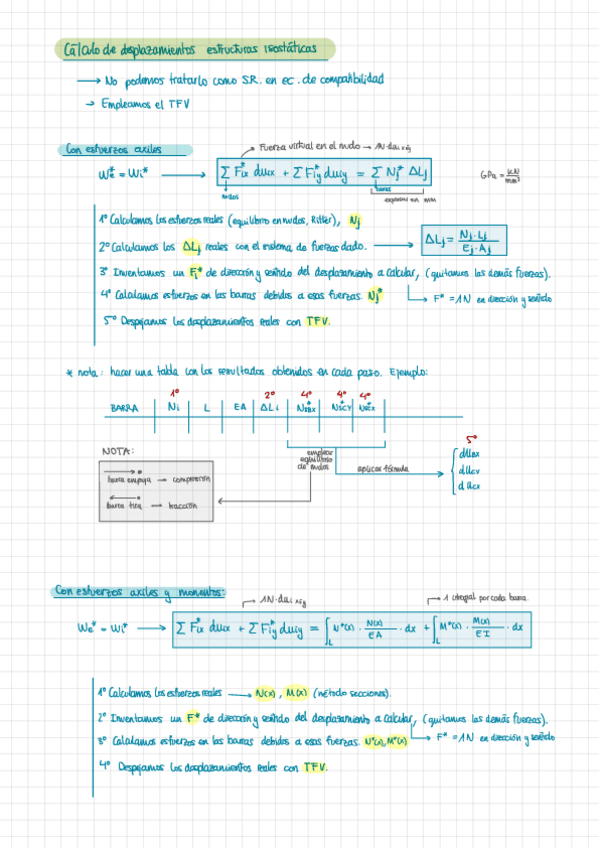 Cálculo de desplazamientos estructuras isostáticas
→ No podemos tratarlo como S.R. en ec. de compatibilidad
→ Empleamos el TFV
Con esfuerzos axiles
Fuerza virtual en el nudo → 1N·du
We* = Wi* → Σ Fix* duix + Σ Fiy* duiy = Σ Nj* ΔLj
GPa = kN/mm²
nudos
barras
expresar en mm
1º Calculamos los esfuerzos reales (equilibrio en nudos, Ritter), Nj
2º Calculamos los ΔLj reales con el sistema de fuerzas dado. → ΔLj = Nj·Lj / Ej·Aj
3º Inventamos un Fi* de dirección y sentido del desplazamiento a calcular, (quitamos las demás fuerzas).
4º Calculamos esfuerzos en las barras debidos a esas fuerzas. Nj*
F* = 1N en dirección y sentido
5º Despejamos los desplazamientos reales con TFV.
* nota: hacer una tabla con los resultados obtenidos en cada paso. Ejemplo:
1º 2º 4º 4º 4º
BARRA | Ni | L | EA | ΔLi | | |
5º
NOTA:
emplear
equilibrio
de nudos
aplicar fórmula
duBx
duCy
duCx
barra empuja → compresión
barra tira → tracción
Con esfuerzos axiles y momentos:
1N·du
1 integral por cada barra
We* = Wi* → Σ Fix* duix + Σ Fiy* duiy = ∫L N*(x) · N(x)/EA · dx + ∫L M*(x) · M(x)/EI · dx
1º Calculamos los esfuerzos reales → N(x), M(x) (método secciones).
2º Inventamos un F* de dirección y sentido del desplazamiento a calcular, (quitamos las demás fuerzas).
3º Calculamos esfuerzos en las barras debidos a esas fuerzas. N*(x), M*(x)
F* = 1N en dirección y sentido
4º Despejamos los desplazamientos reales con TFV.